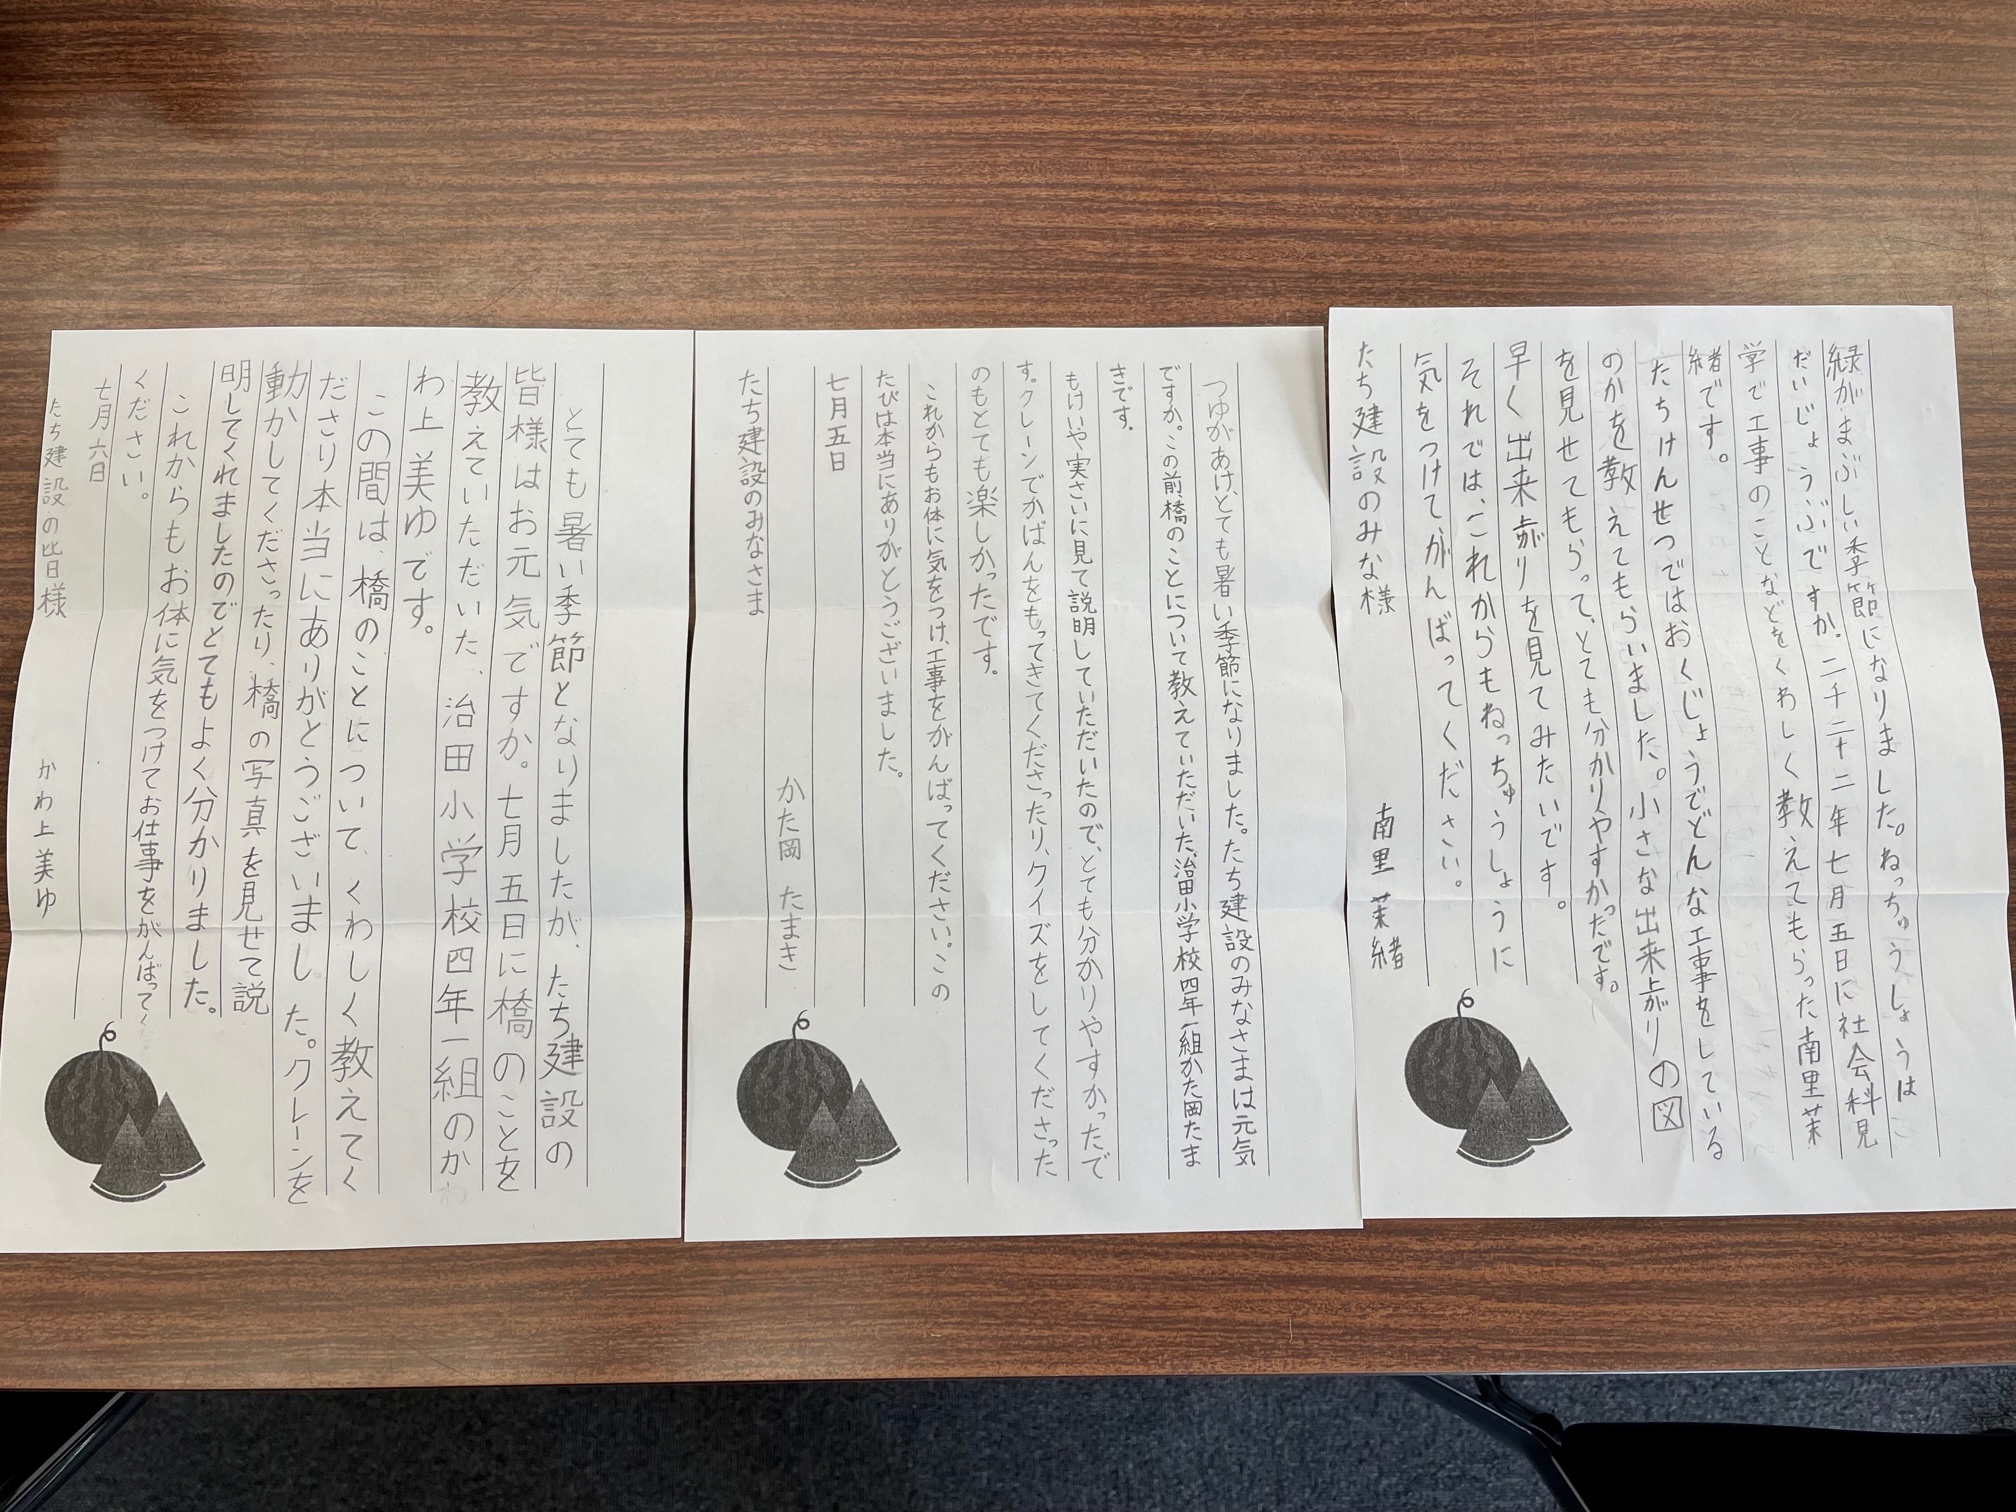 緑がまぶしい季節になりました。ねっちゅうしょうは
だいじょうぶですか。二千二十二年七月五日に社会科見
学で工事のことなどをくわしく教えてもらった南里茉
緒です。
たちけんせつではおくじょうでどんな工事をしている
のかを教えてもらいました。小さな出来上がりの図
を見せてもらって、とても分かりやすかったです。
早く出来上がりを見てみたいです。
それでは、これからもねっちゅうしょうに
気をつけてがんばってください。
南里 茉緒
たち建設のみな様
つゆがあけ、とても暑い季節になりました。たち建設のみなさまは元気
ですか。この前橋のことについて教えていただいた、治田小学校四年一組かた岡たま
きです。
もけいや実さいに見て説明していただいたので、とても分かりやすかったで
す。クレーンでかばんをもってきてくださったり、クイズをしてくださった
のもとても楽しかったです。
これからもお体に気をつけ、工事をがんばってください。この
たびは本当にありがとうございました。
七月五日
かた岡 たまき
たち建設のみなさま
とても暑い季節となりましたが、たち建設の
皆様はお元気ですか。七月五日に橋のことを
教えていただいた、治田小学校四年一組のかわ
わ上美ゆです。
この間は、橋のことについて、くわしく教えてく
ださり本当にありがとうございました。クレーンを
動かしてくださったり、橋の写真を見せて説
明してくれましたのでとてもよく分かりました。
これからもお体に気をつけてお仕事をがんばってく
ください。
七月六日
かわ上美ゆ
たち建設の皆様